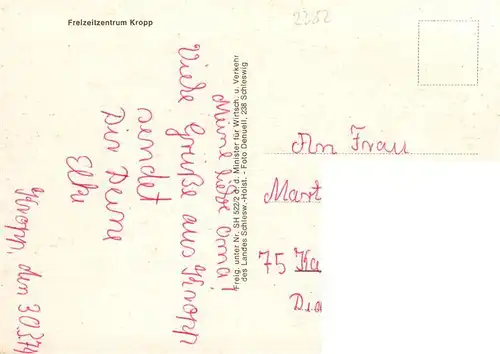 Freizeitzentrum Kropp
2382
Kropp, den 30.7.74
Meine liebe Oma!
Viele Grüße aus Kropp
sendet
Dir Deine
Elke
Freig. unter Nr. SH 522/2 d. d. Minister für Wirtsch. u. Verkehr
des Landes Schlesw.-Holst. - Foto Denuell, 238 Schleswig
An Frau
Mart
75 Ka